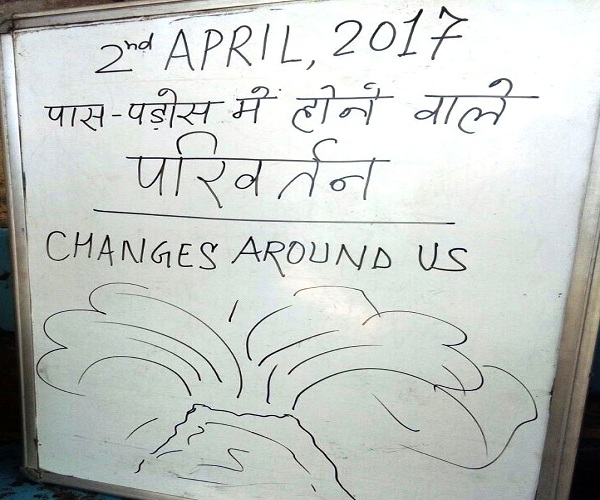 2nd APRIL, 2017
पास-पड़ोस में होने वाले
परिवर्तन
CHANGES AROUND US